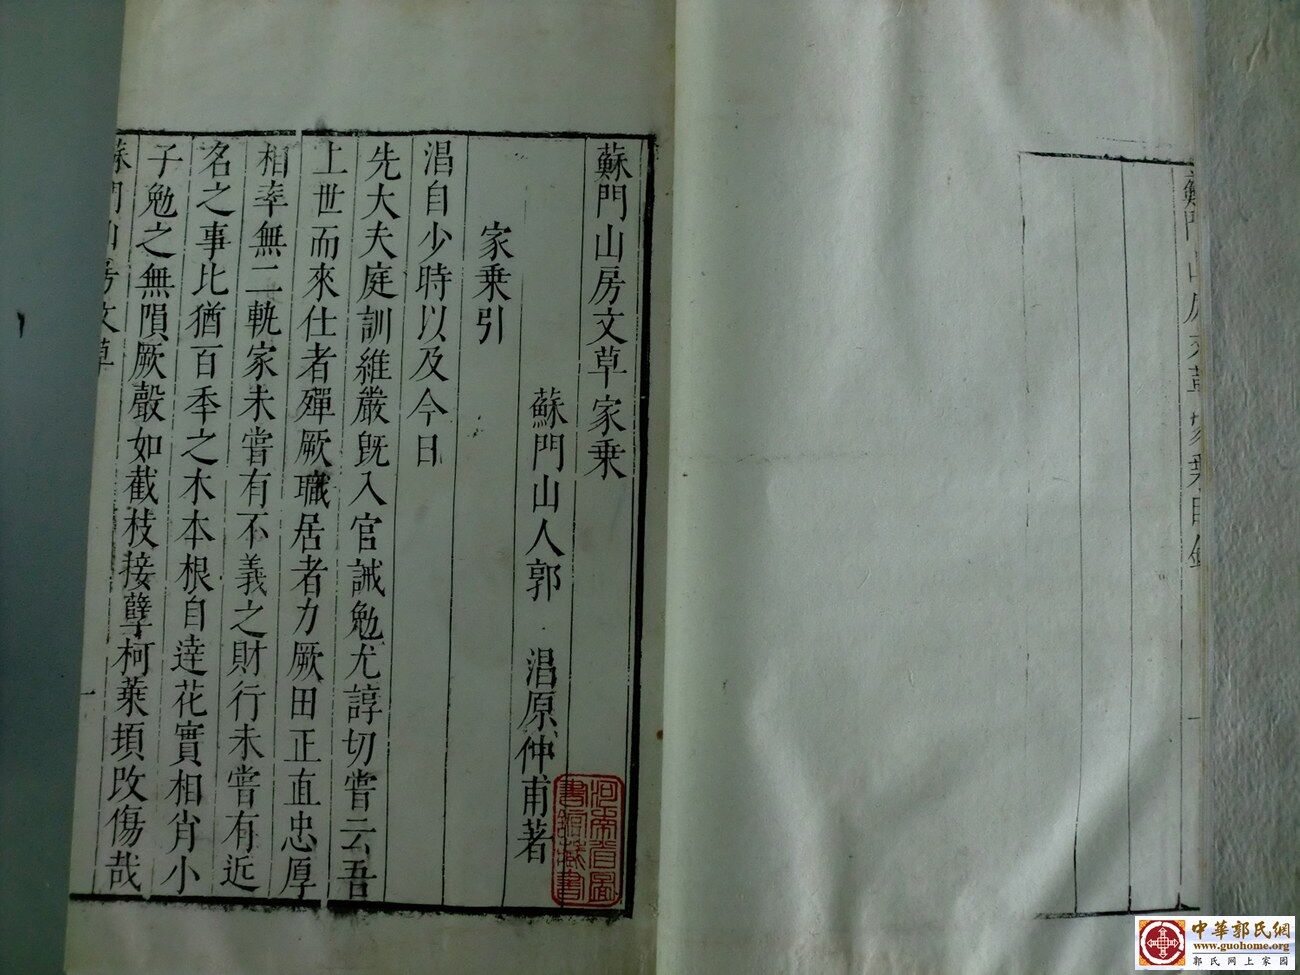 蘇門山房文草家乗
蘇門山人郭　淐原仲甫著
家乗引
淐自少時以及今日
先大夫庭訓維嚴旣入官誡勉尤諄切嘗云吾
上世而來仕者殫厥職居者力厥田正直忠厚
相率無二軌家未嘗有不義之財行未嘗有近
名之事比猶百季之木本根自達花實相肖小
子勉之無隕厥聲如截枝接孽柯葉頓改傷哉
蘇門山房文草
一
河南省圖
書館藏書
中華郭氏網
www.guohome.org
郭氏网上家园